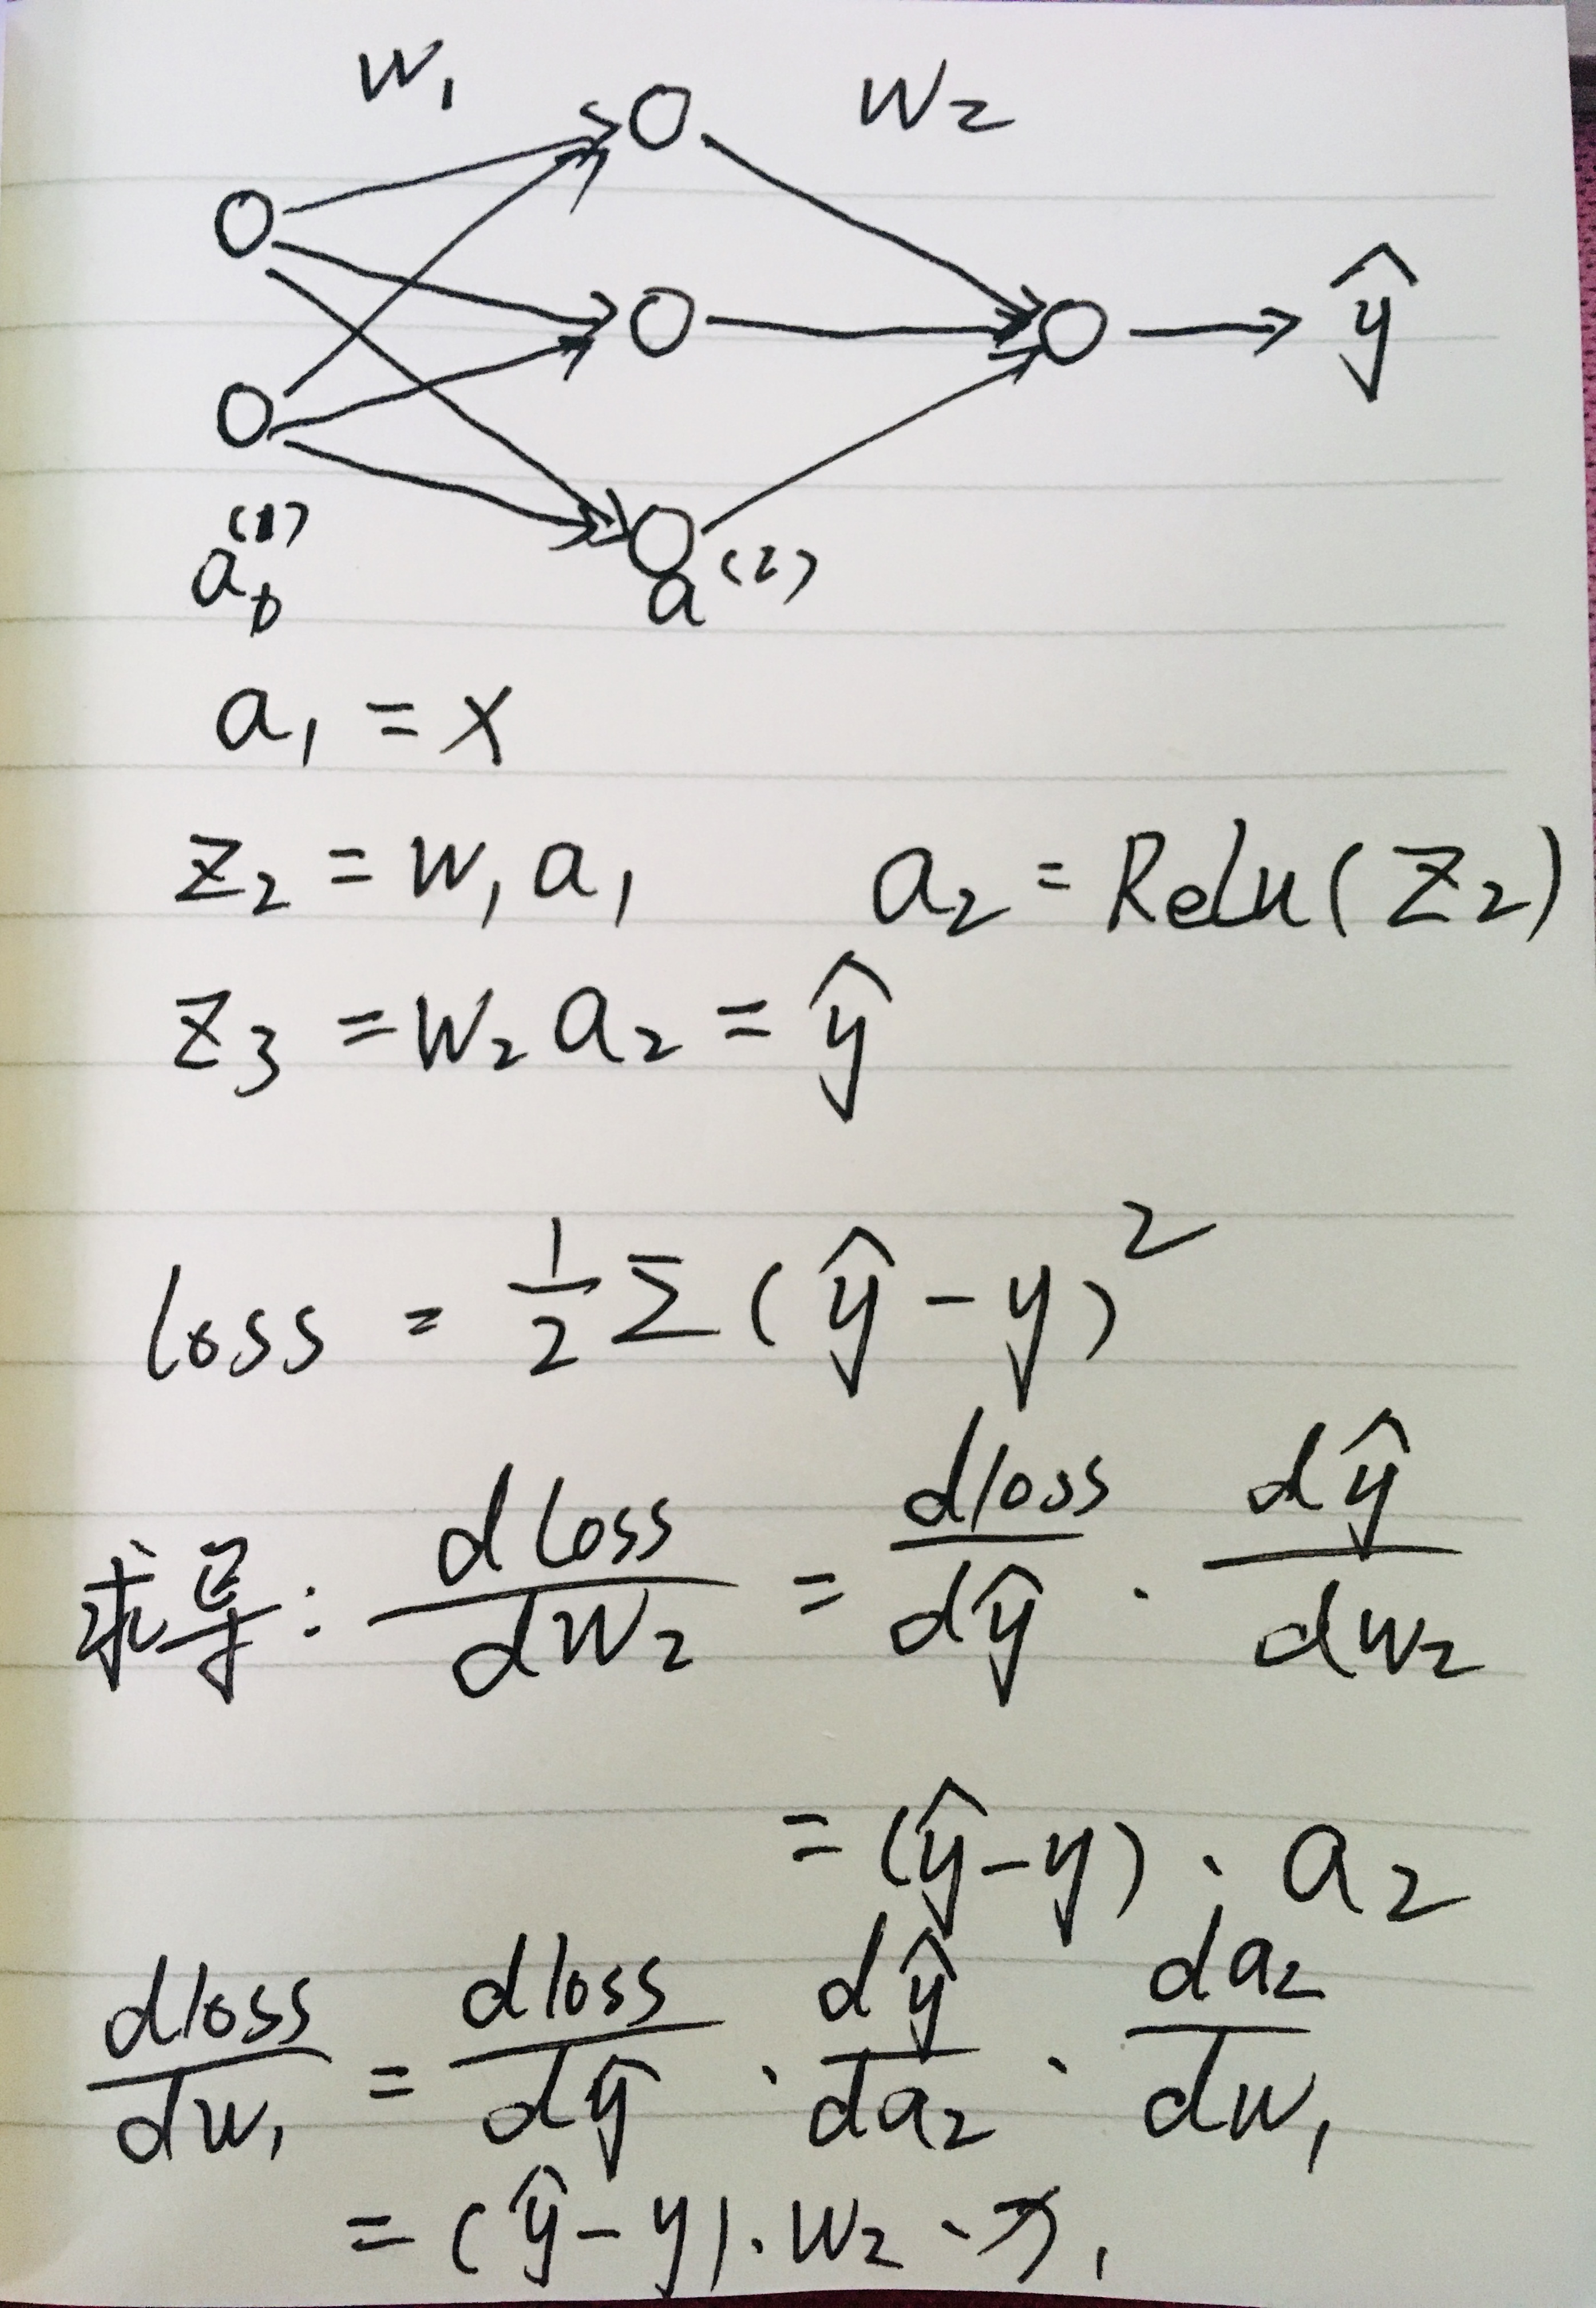 W₁ W₂
ŷ
a₀⁽¹⁾ a⁽²⁾
a₁ = x
z₂ = W₁ a₁ a₂ = Relu(z₂)
z₃ = W₂ a₂ = ŷ
loss = 1/2 Σ (ŷ - y)²
求导: dloss/dW₂ = dloss/dŷ · dŷ/dW₂
= (ŷ-y) · a₂
dloss/dW₁ = dloss/dŷ · dŷ/da₂ · da₂/dW₁
= (ŷ-y) · W₂ ·